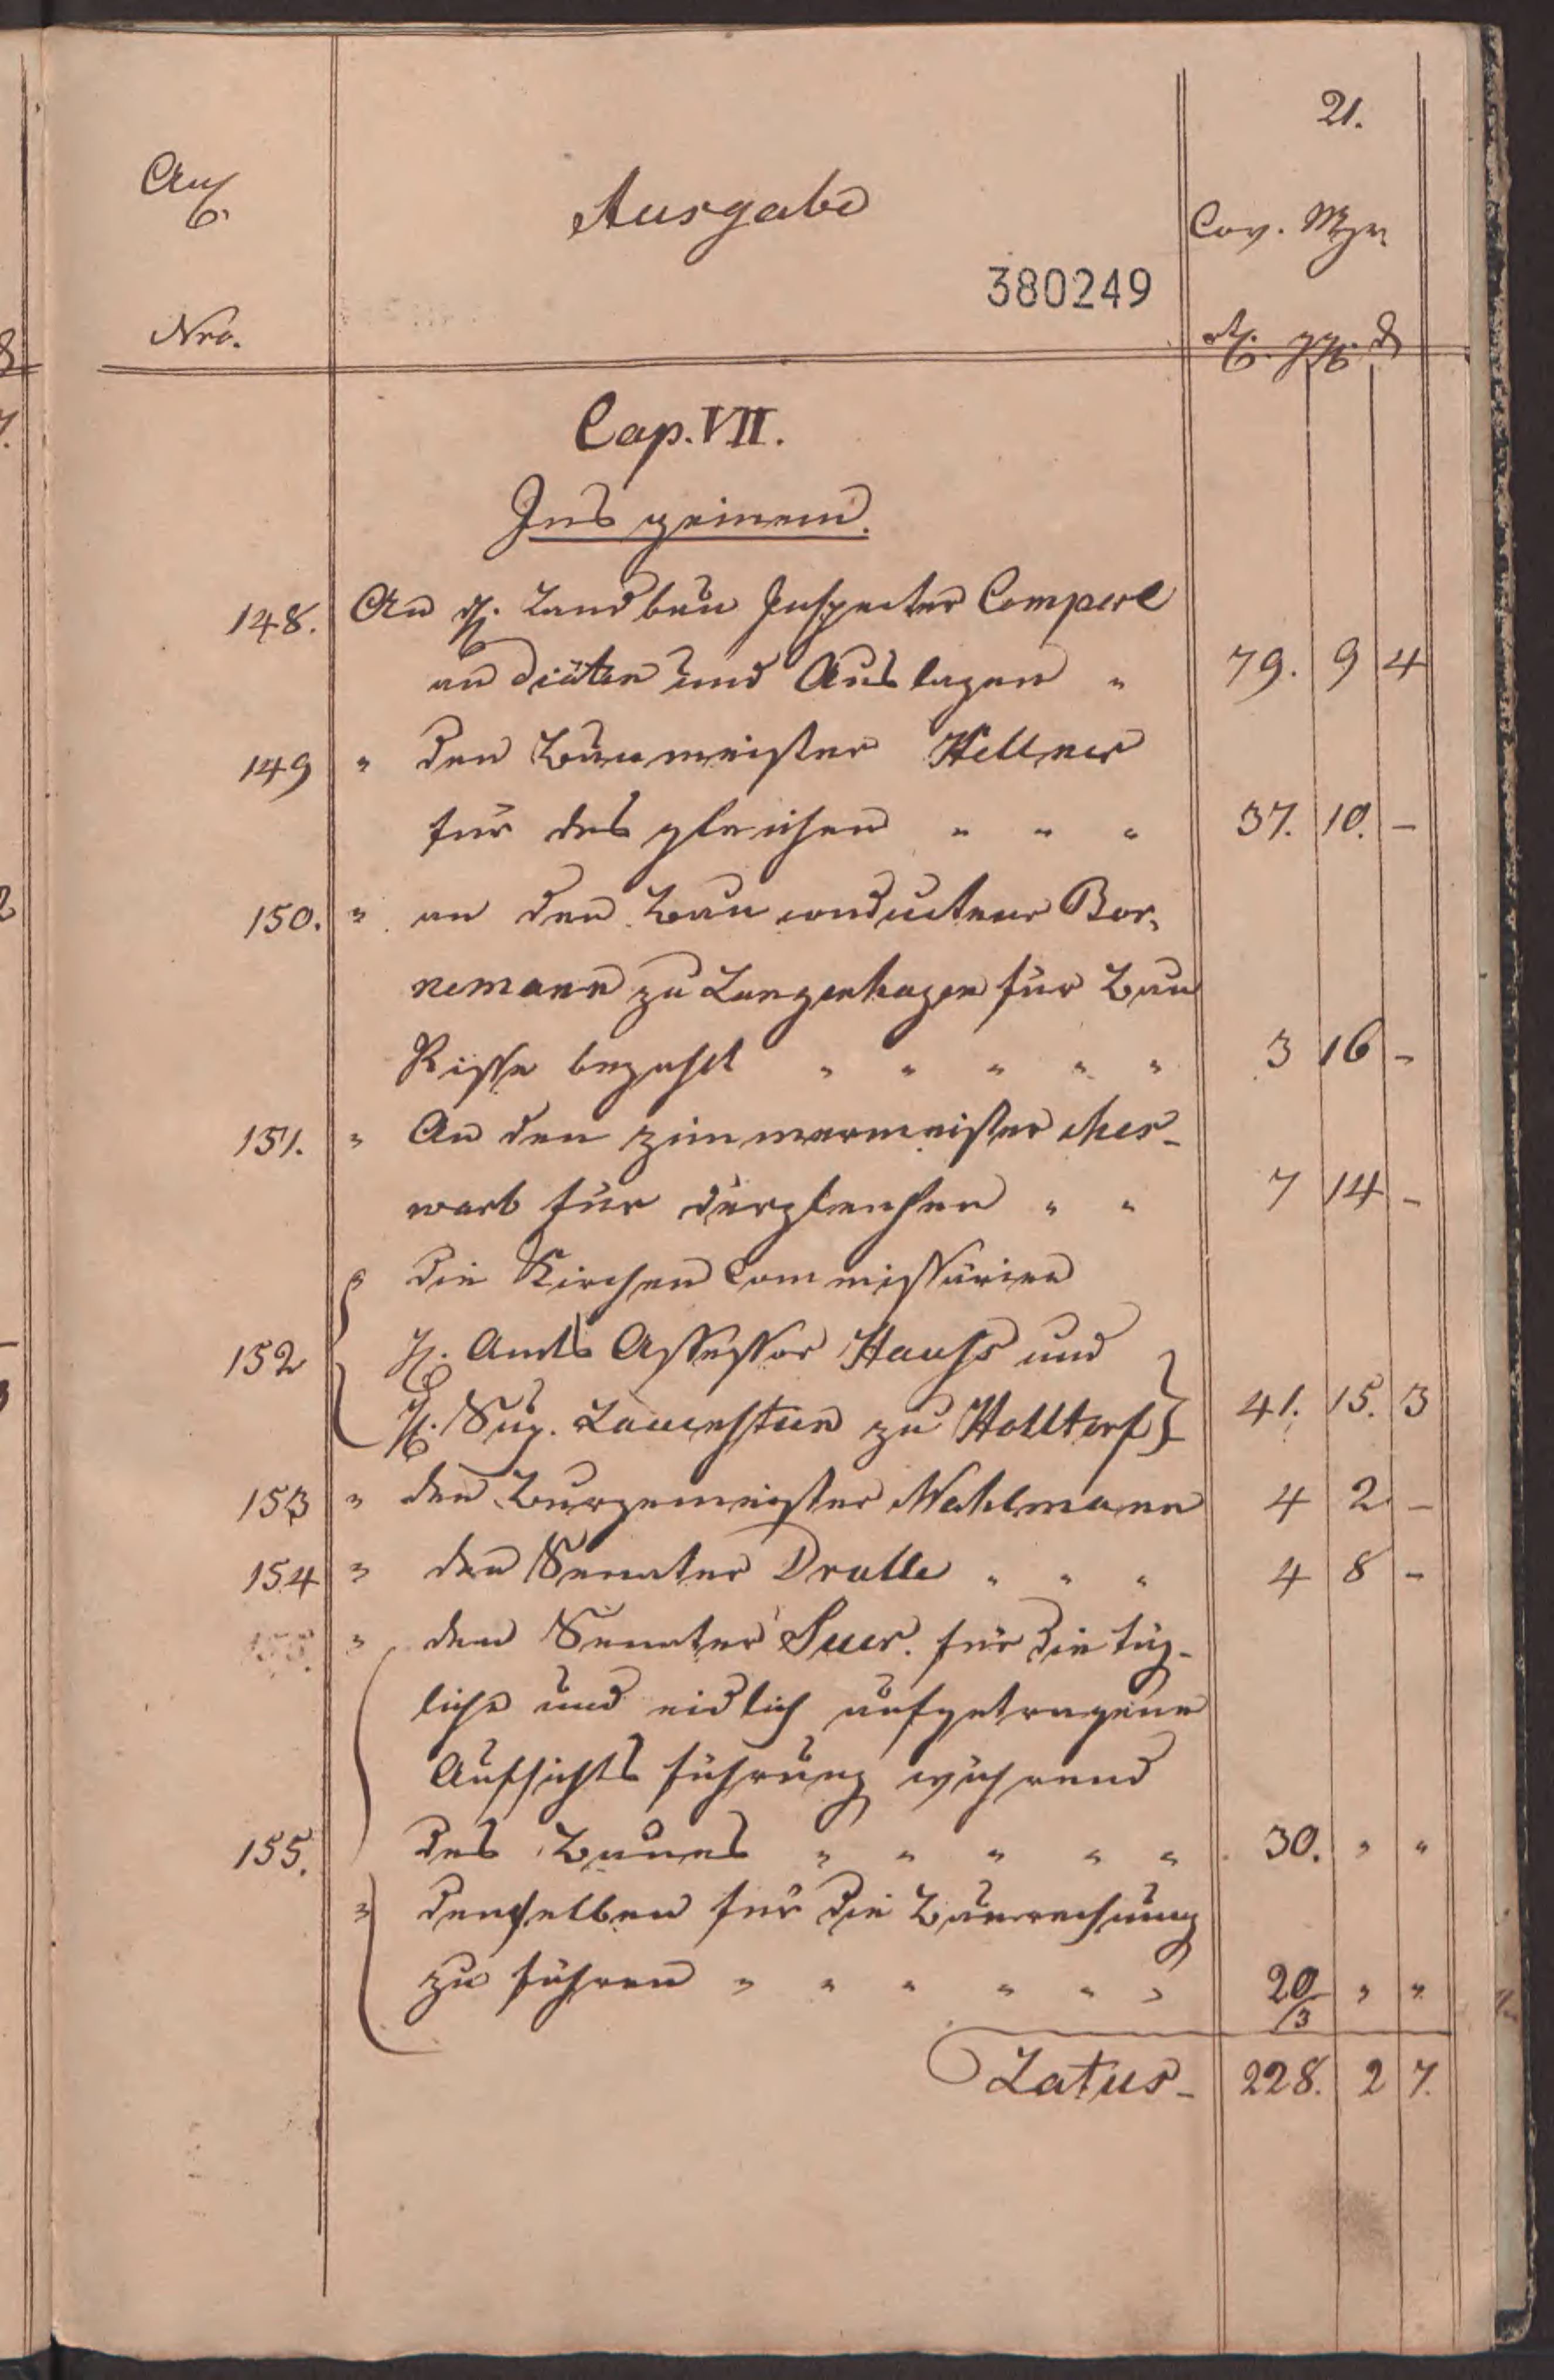 21.
Anl.
Ausgabe
Cov. Mze
380249
Nro.
rth. ggr. d
Cap. VII.
Ins geinem.
148. An H. Landbau Inspector Comperl
an Diäten und Auslagen " 79. 9 4
149 " den Baumeister Hellner
für des gleichen " " " 37. 10. –
150. " an den Bau conducteur Bor,
nemann zu Langenhagen für Bau
Risse bezahlt " " " " " 3 16 –
151. " An den Zimmermeister Mer-
warb für dergleichen " " 7 14 –
" die Kirchen Commissärien
152 H. Amts Assessor Haufs und
H. Sup. Lauenstein zu Holltorf 41. 15. 3
153 " den Burgemeister Wahlmann 4 2. –
154 " den Senator Dralle " " " 4 8 –
155. " den Senator Suer. für die täg-
liche und eidlich aufgetragene
Aufsichts führung während
155. des Baues " " " " " 30. " "
" denselben für die Baurechnung
zu führen " " " " " " 20 " "
/3
Latus – 228. 2 7.